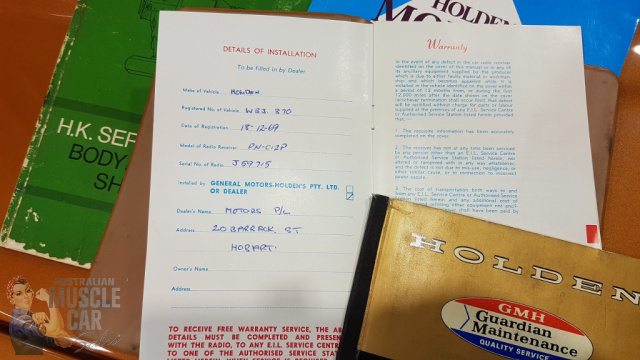 HOLDEN
H.K. SER
BODY
SH
DETAILS OF INSTALLATION
To be filled in by Dealer
Make of Vehicle HOLDEN.
Registered No. of Vehicle WBJ. 870
Date of Registration 18-12-69
Model of Radio Receiver PN-C-2P
Serial No. of Radio J 59715
Installed by GENERAL MOTORS-HOLDEN'S PTY. LTD.
OR DEALER
Dealer's Name MOTORS P/L
Address 20 BARRACK. ST
HOBART.
Owner's Name
Address
TO RECEIVE FREE WARRANTY SERVICE, THE AB
DETAILS MUST BE COMPLETED AND PRESEN
WITH THE RADIO, TO ANY E.I.L. SERVICE CENTR
TO ONE OF THE AUTHORISED SERVICE STAT
Warranty
In the event of any defect in the car radio receiver
identified on the cover of this manual or in any of
its ancillary equipment supplied by the producer
which is due to either faulty material or workman-
ship and which becomes apparent while it is
installed in the vehicle identified on the cover within
a period of 12 months from, or during the first
12,000 miles after the date shown on the cover
(whichever termination shall occur first) that defect
will be rectified without charge for parts or labour
supplied at the premises of any E.I.L. Service Centre
or Authorised Service Station listed herein provided
that,—
1. The requisite information has been accurately
completed on the cover.
2. The receiver has not at any time been serviced
by any person other than an E.I.L. Service Centre
or Authorised Service Station listed herein, nor
altered or tampered with in any way whatsoever,
and the defect is not due to mis-use, negligence, or
other procedure, or to connection to incorrect
power supply.
3. The cost of transportation both ways to and
from any E.I.L. Service Centre or Authorised Service
Station listed herein and any additional cost of
HOLDEN
GMH
Guardian
Maintenance
QUALITY SERVICE
AUSTRALIAN
MUSCLE
CAR
Sales